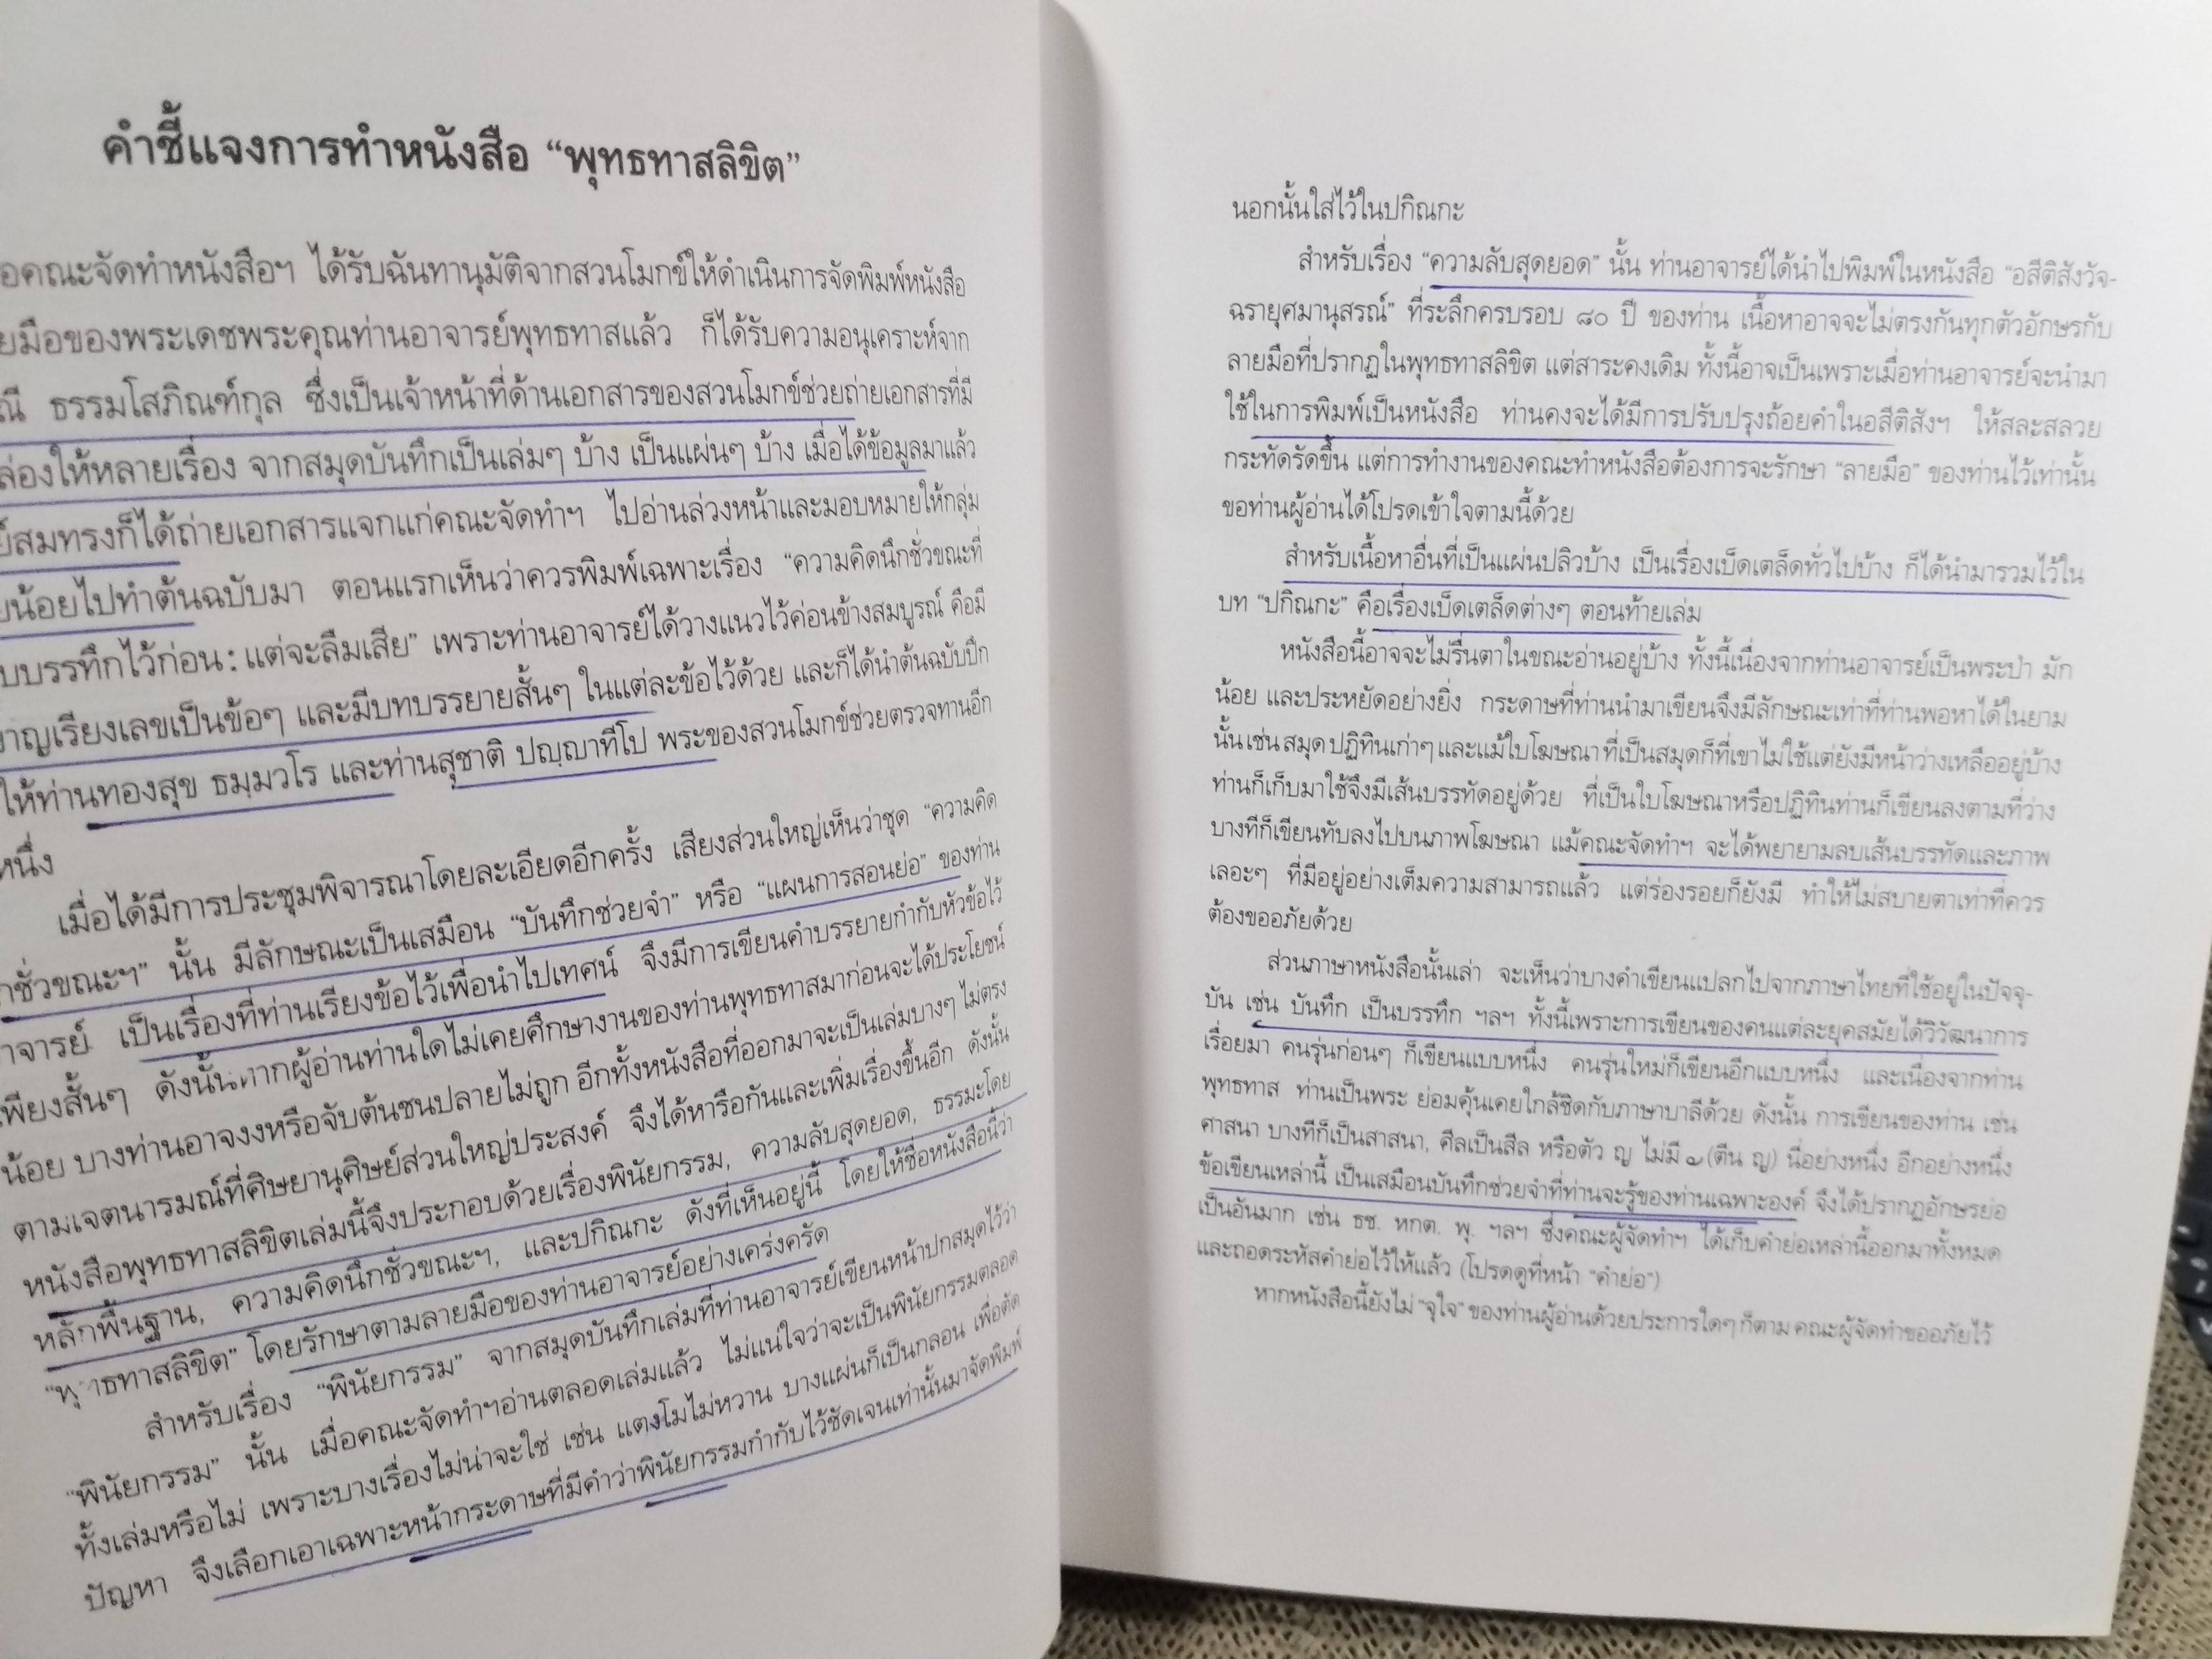 คำชี้แจงการทำหนังสือ “พุทธทาสลิขิต”
อคณะจัดทำหนังสือฯ ได้รับฉันทานุมัติจากสวนโมกข์ให้ดำเนินการจัดพิมพ์หนังสือ
ยมือของพระเดชพระคุณท่านอาจารย์พุทธทาสแล้ว ก็ได้รับความอนุเคราะห์จาก
ณี ธรรมโสภิณฑ์กุล ซึ่งเป็นเจ้าหน้าที่ด้านเอกสารของสวนโมกข์ช่วยถ่ายเอกสารที่มี
ล่องให้หลายเรื่อง จากสมุดบันทึกเป็นเล่มๆ บ้าง เป็นแผ่นๆ บ้าง เมื่อได้ข้อมูลมาแล้ว
ย์สมทรงก็ได้ถ่ายเอกสารแจกแก่คณะจัดทำฯ ไปอ่านล่วงหน้าและมอบหมายให้กลุ่ม
บน้อยไปทำต้นฉบับมา ตอนแรกเห็นว่าควรพิมพ์เฉพาะเรื่อง “ความคิดนึกชั่วขณะที่
บบรรทึกไว้ก่อน : แต่จะลืมเสีย” เพราะท่านอาจารย์ได้วางแนวไว้ค่อนข้างสมบูรณ์ คือมี
าญเรียงเลขเป็นข้อๆ และมีบทบรรยายสั้นๆ ในแต่ละข้อไว้ด้วย และก็ได้นำต้นฉบับปึก
ให้ท่านทองสุข ธมฺมวโร และท่านสุชาติ ปญฺญาทีโป พระของสวนโมกข์ช่วยตรวจทานอีก
หนึ่ง
เมื่อได้มีการประชุมพิจารณาโดยละเอียดอีกครั้ง เสียงส่วนใหญ่เห็นว่าชุด “ความคิด
กชั่วขณะฯ” นั้น มีลักษณะเป็นเสมือน “บันทึกช่วยจำ” หรือ “แผนการสอนย่อ” ของท่าน
าจารย์ เป็นเรื่องที่ท่านเรียงข้อไว้เพื่อนำไปเทศน์ จึงมีการเขียนคำบรรยายกำกับหัวข้อไว้
เพียงสั้นๆ ดังนั้นหากผู้อ่านท่านใดไม่เคยศึกษางานของท่านพุทธทาสมาก่อนจะได้ประโยชน์
น้อย บางท่านอาจงงหรือจับต้นชนปลายไม่ถูก อีกทั้งหนังสือที่ออกมาจะเป็นเล่มบางๆ ไม่ตรง
ตามเจตนารมณ์ที่ศิษยานุศิษย์ส่วนใหญ่ประสงค์ จึงได้หารือกันและเพิ่มเรื่องขึ้นอีก ดังนั้น
หนังสือพุทธทาสลิขิตเล่มนี้จึงประกอบด้วยเรื่องพินัยกรรม, ความลับสุดยอด, ธรรมะโดย
หลักพื้นฐาน, ความคิดนึกชั่วขณะฯ, และปกิณกะ ดังที่เห็นอยู่นี้ โดยให้ชื่อหนังสือนี้ว่า
“พุทธทาสลิขิต” โดยรักษาตามลายมือของท่านอาจารย์อย่างเคร่งครัด
สำหรับเรื่อง “พินัยกรรม” จากสมุดบันทึกเล่มที่ท่านอาจารย์เขียนหน้าปกสมุดไว้ว่า
“พินัยกรรม” นั้น เมื่อคณะจัดทำฯอ่านตลอดเล่มแล้ว ไม่แน่ใจว่าจะเป็นพินัยกรรมตลอด
ทั้งเล่มหรือไม่ เพราะบางเรื่องไม่น่าจะใช่ เช่น แตงโมไม่หวาน บางแผ่นก็เป็นกลอน เพื่อตัด
ปัญหา จึงเลือกเอาเฉพาะหน้ากระดาษที่มีคำว่าพินัยกรรมกำกับไว้ชัดเจนเท่านั้นมาจัดพิมพ์
นอกนั้นใส่ไว้ในปกิณกะ
สำหรับเรื่อง “ความลับสุดยอด” นั้น ท่านอาจารย์ได้นำไปพิมพ์ในหนังสือ “อสีติสังวัจ-
ฉรายุศมานุสรณ์” ที่ระลึกครบรอบ ๘๐ ปี ของท่าน เนื้อหาอาจจะไม่ตรงกันทุกตัวอักษรกับ
ลายมือที่ปรากฏในพุทธทาสลิขิต แต่สาระคงเดิม ทั้งนี้อาจเป็นเพราะเมื่อท่านอาจารย์จะนำมา
ใช้ในการพิมพ์เป็นหนังสือ ท่านคงจะได้มีการปรับปรุงถ้อยคำในอสีติสังฯ ให้สละสลวย
กระทัดรัดขึ้น แต่การทำงานของคณะทำหนังสือต้องการจะรักษา “ลายมือ” ของท่านไว้เท่านั้น
ขอท่านผู้อ่านได้โปรดเข้าใจตามนี้ด้วย
สำหรับเนื้อหาอื่นที่เป็นแผ่นปลิวบ้าง เป็นเรื่องเบ็ดเตล็ดทั่วไปบ้าง ก็ได้นำมารวมไว้ใน
บท “ปกิณกะ” คือเรื่องเบ็ดเตล็ดต่างๆ ตอนท้ายเล่ม
หนังสือนี้อาจจะไม่รื่นตาในขณะอ่านอยู่บ้าง ทั้งนี้เนื่องจากท่านอาจารย์เป็นพระป่า มัก
น้อย และประหยัดอย่างยิ่ง กระดาษที่ท่านนำมาเขียนจึงมีลักษณะเท่าที่ท่านพอหาได้ในยาม
นั้น เช่น สมุด ปฏิทินเก่าๆ และแม้ใบโฆษณา ที่เป็นสมุดก็ที่เขาไม่ใช้แต่ยังมีหน้าว่างเหลืออยู่บ้าง
ท่านก็เก็บมาใช้จึงมีเส้นบรรทัดอยู่ด้วย ที่เป็นใบโฆษณาหรือปฏิทินท่านก็เขียนลงตามที่ว่าง
บางทีก็เขียนทับลงไปบนภาพโฆษณา แม้คณะจัดทำฯ จะได้พยายามลบเส้นบรรทัดและภาพ
เลอะๆ ที่มีอยู่อย่างเต็มความสามารถแล้ว แต่ร่องรอยก็ยังมี ทำให้ไม่สบายตาเท่าที่ควร
ต้องขออภัยด้วย
ส่วนภาษาหนังสือนั้นเล่า จะเห็นว่าบางคำเขียนแปลกไปจากภาษาไทยที่ใช้อยู่ในปัจจุ-
บัน เช่น บันทึก เป็นบรรทึก ฯลฯ ทั้งนี้เพราะการเขียนของคนแต่ละยุคสมัยได้วิวัฒนาการ
เรื่อยมา คนรุ่นก่อนๆ ก็เขียนแบบหนึ่ง คนรุ่นใหม่ก็เขียนอีกแบบหนึ่ง และเนื่องจากท่าน
พุทธทาส ท่านเป็นพระ ย่อมคุ้นเคยใกล้ชิดกับภาษาบาลีด้วย ดังนั้น การเขียนของท่าน เช่น
ศาสนา บางทีก็เป็นสาสนา, ศีลเป็นสีล หรือตัว ญ ไม่มี (ตีน ญ) นี่อย่างหนึ่ง อีกอย่างหนึ่ง
ข้อเขียนเหล่านี้ เป็นเสมือนบันทึกช่วยจำที่ท่านจะรู้ของท่านเฉพาะองค์ จึงได้ปรากฏอักษรย่อ
เป็นอันมาก เช่น ธช. หกต. พุ. ฯลฯ ซึ่งคณะผู้จัดทำฯ ได้เก็บคำย่อเหล่านี้ออกมาทั้งหมด
และถอดระหัสคำย่อไว้ให้แล้ว (โปรดดูที่หน้า “คำย่อ”)
หากหนังสือนี้ยังไม่ “จุใจ” ของท่านผู้อ่านด้วยประการใดๆ ก็ตาม คณะผู้จัดทำขออภัยไว้